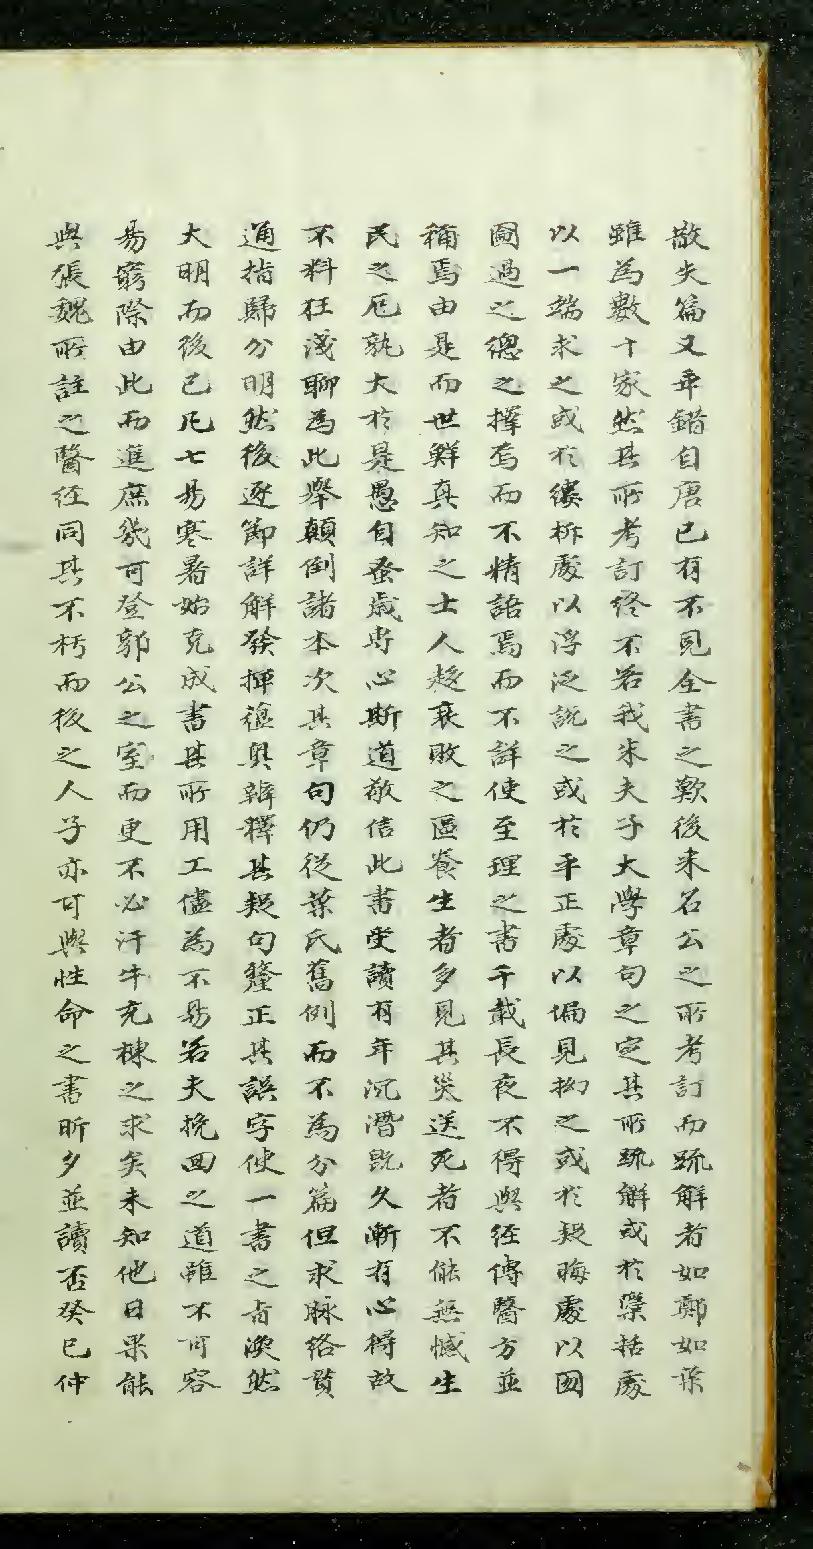 散失篇又乖錯自唐已有不見全書之歎後來名公之所考訂而疏解者如鄭如葉
雖為數十家然其所考訂終不若我朱夫子大學章句之定其所疏解或於檃括處
以一端求之或於縷柝處以浮泛說之或於平正處以偏見拗之或於疑晦處以囫
圇過之總之擇焉而不精語焉而不詳使至理之書千載長夜不得與經傳醫方並
稱焉由是而世鮮真知之士人趍衰敗之區養生者多見其災送死者不能無憾生
民之厄孰大於是愚自蚤歲專心斯道敬信此書受讀有年沉潛既久漸有心得故
不料狂淺聊為此舉顛倒諸本次其章句仍從葉氏舊例而不為分篇但求脉絡貫
通指歸分明然後逐節詳解發揮蘊奧辨釋其疑句釐正其誤字使一書之旨渙然
大明而後已凡七易寒暑始克成書其所用工儘為不易若夫挽回之道雖不可容
易窮際由此而進庶幾可登郭公之室而更不必汗牛充棟之求矣未知他日果能
與張魏所註之醫經同其不朽而後之人子亦可與性命之書昕夕並讀否癸巳仲